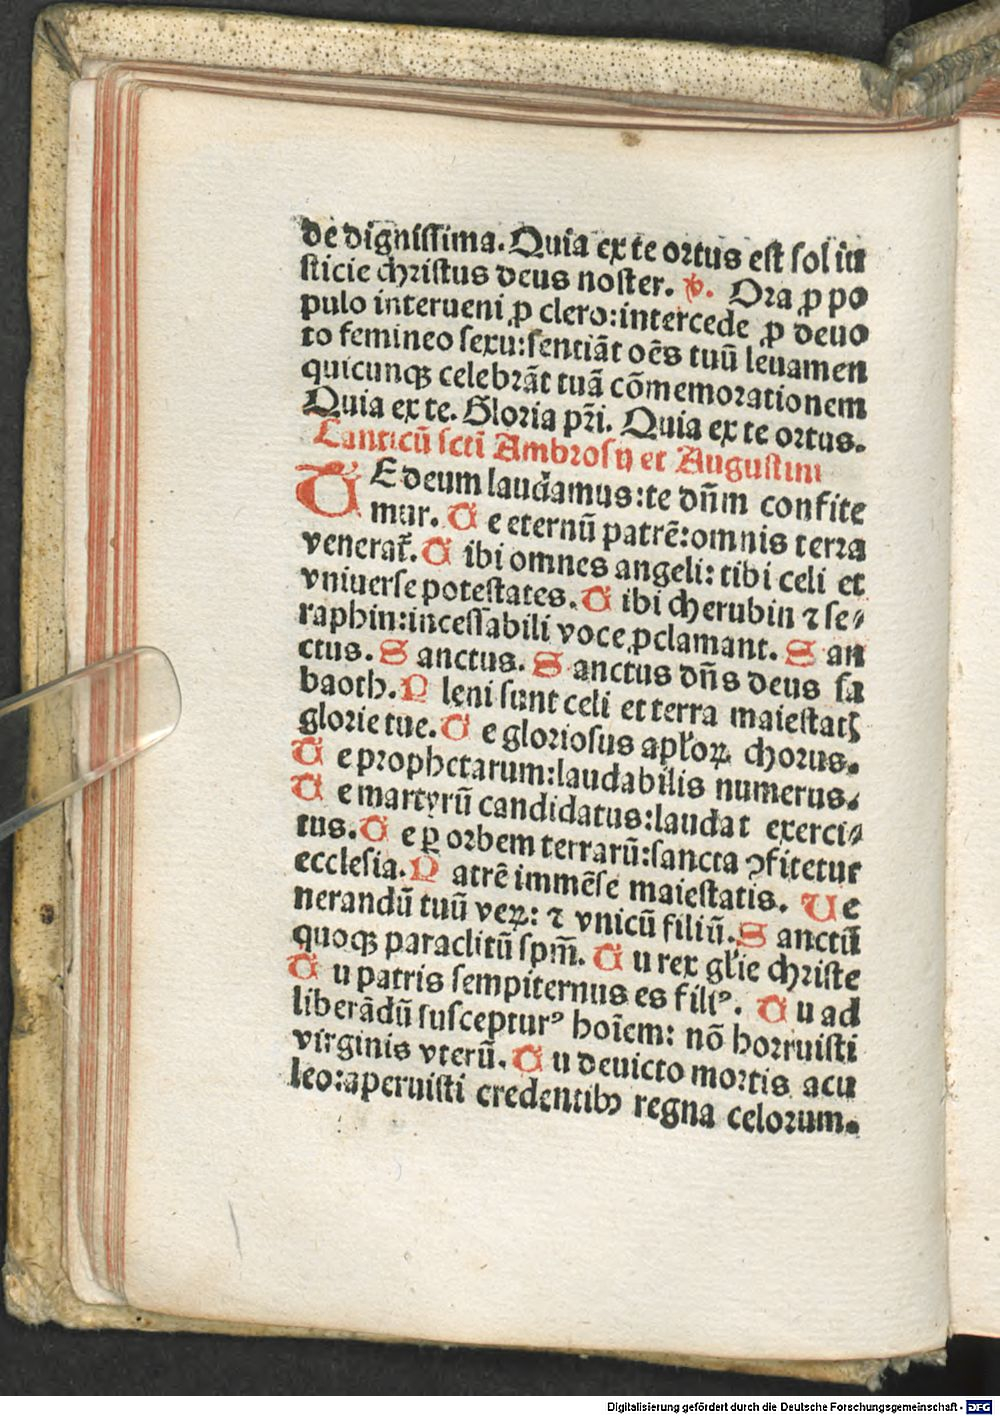 de dignissima. Quia ex te ortus est sol iu
sticie christus deus noster. ꝟ. Ora ꝓ po
pulo interueni ꝓ clero:intercede ꝓ deuo
to femineo sexu:sentiāt oēs tuū leuamen
quicunqꝫ celebrāt tuā cōmemorationem
Quia ex te. Gloria pr̄i. Quia ex te ortus.
Canticū scti Ambrosij et Augustini
TE deum laudamus:te dn̄m confite
mur. Te eternū patrē:omnis terra
venerat̄. Tibi omnes angeli: tibi celi et
vniuerse potestates. Tibi cherubin ⁊ se⸗
raphin:incessabili voce ꝓclamant. San
ctus. Sanctus. Sanctus dn̄s deus sa
baoth. Pleni sunt celi et terra maiestatꝭ
glorie tue. Te gloriosus apl̄oꝝ chorus.
Te prophetarum:laudabilis numerus.
Te martyrū candidatus:laudat exerci⸗
tus. Te ꝑ orbem terrarū:sancta ꝯfitetur
ecclesia. Patrē immēse maiestatis. Ue
nerandū tuū veꝝ: ⁊ vnicū filiū. Sanctū
quoqꝫ paraclitū spm̄. Tu rex gl̄ie christe
Tu patris sempiternus es filiꝰ. Tu ad
liberādū suscepturꝰ hoīem: nō horruisti
virginis vterū. Tu deuicto mortis acu
leo:aperuisti credentibꝰ regna celorum.
Digitalisierung gefördert durch die Deutsche Forschungsgemeinschaft - DFG